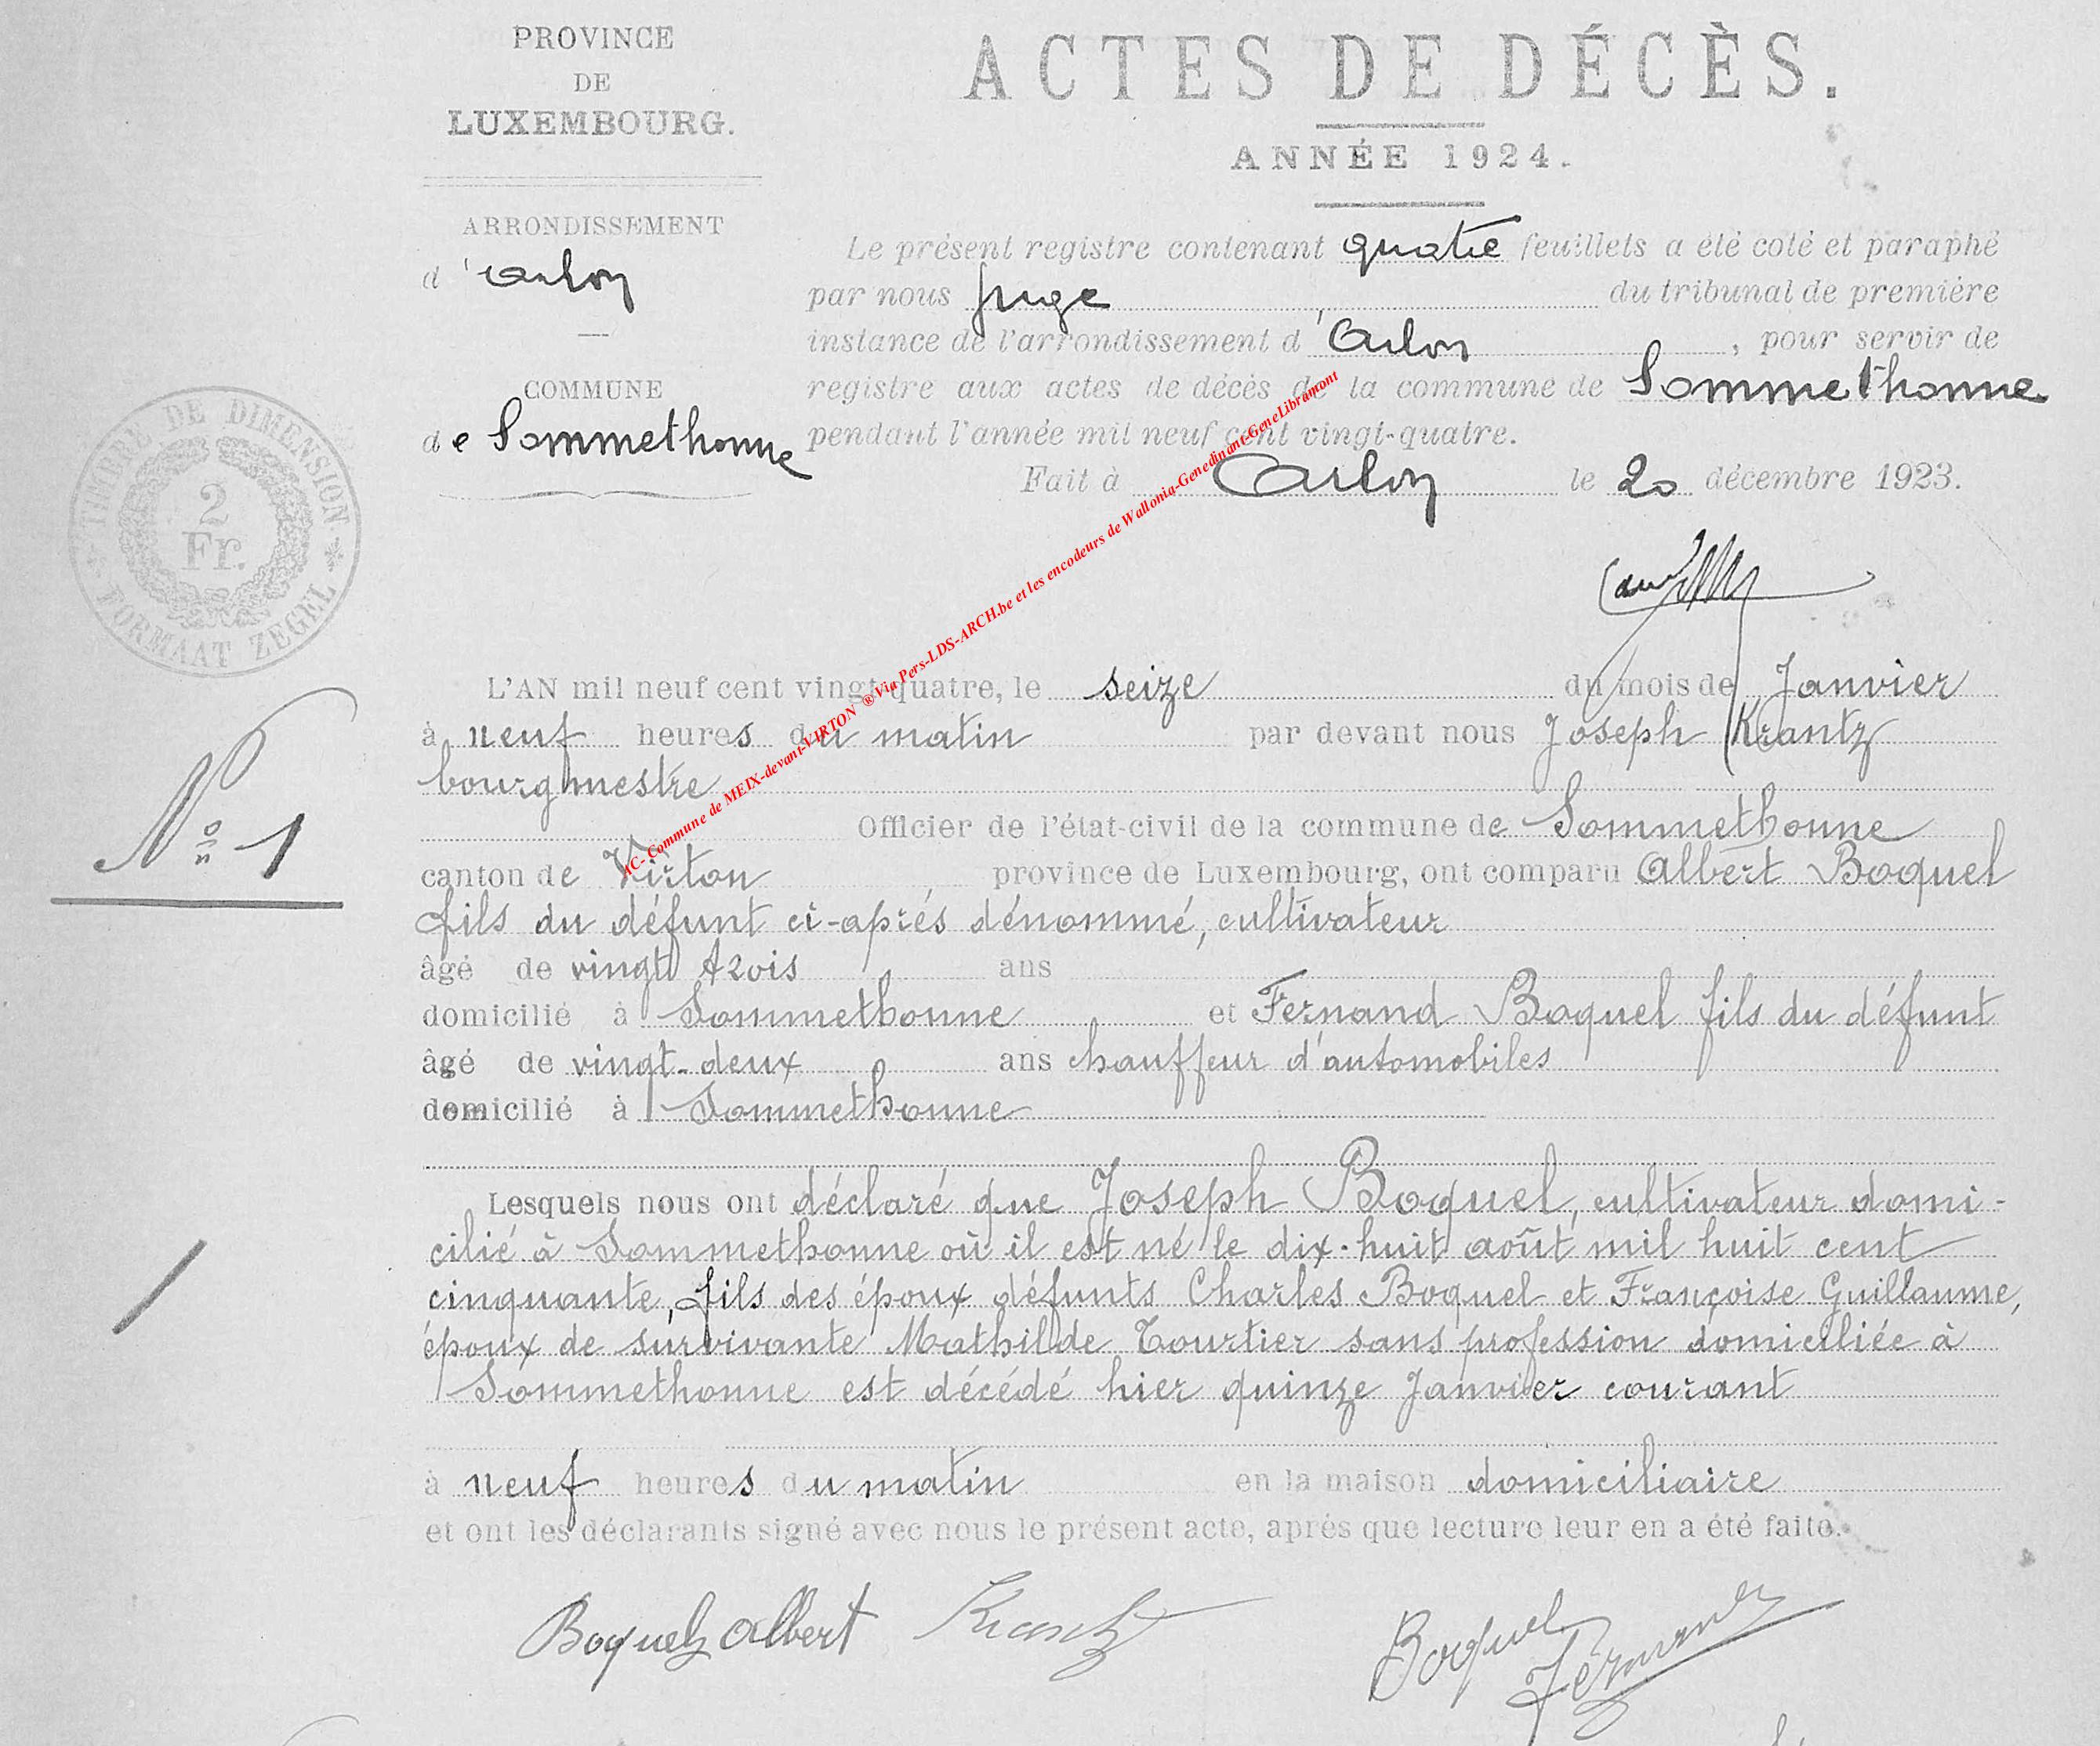 PROVINCE
DE
LUXEMBOURG.
ARRONDISSEMENT
d'Arlon
COMMUNE
de Sommethonne
TIMBRE DE DIMENSION
2
Fr.
FORMAAT ZEGEL
ACTES DE DÉCÈS.
ANNÉE 1924.
Le présent registre contenant quatre feuillets a été coté et paraphé
par nous Juge du tribunal de première
instance de l'arrondissement d'Arlon, pour servir de
registre aux actes de décès de la commune de Sommethonne
pendant l'année mil neuf cent vingt-quatre.
Fait à Arlon le 20 décembre 1923.
AC- Commune de MEIX-devant-VIRTON ® Via Pers-LDS-ARCH.be et les encodeurs de Wallonia-Genedinant-GeneLibramont
No 1
L'AN mil neuf cent vingt-quatre, le seize du mois de Janvier
à neuf heures du matin par devant nous Joseph Krantz
bourgmestre
Officier de l'état-civil de la commune de Sommethonne
canton de Virton province de Luxembourg, ont comparu Albert Boquel
fils du défunt ci-après dénommé, cultivateur
âgé de vingt trois ans
domicilié à Sommethonne et Fernand Boquel fils du défunt
âgé de vingt-deux ans chauffeur d'automobiles
domicilié à Sommethonne
Lesquels nous ont déclaré que Joseph Boquel, cultivateur domi-
cilié à Sommethonne où il est né le dix-huit août mil huit cent
cinquante, fils des époux défunts Charles Boquel et Françoise Guillaume,
époux de survivante Mathilde Tourtier sans profession domiciliée à
Sommethonne est décédé hier quinze Janvier courant
à neuf heures du matin en la maison domiciliaire
et ont les déclarants signé avec nous le présent acte, après que lecture leur en a été faite.
Boquel Albert Krantz Boquel
Fernand